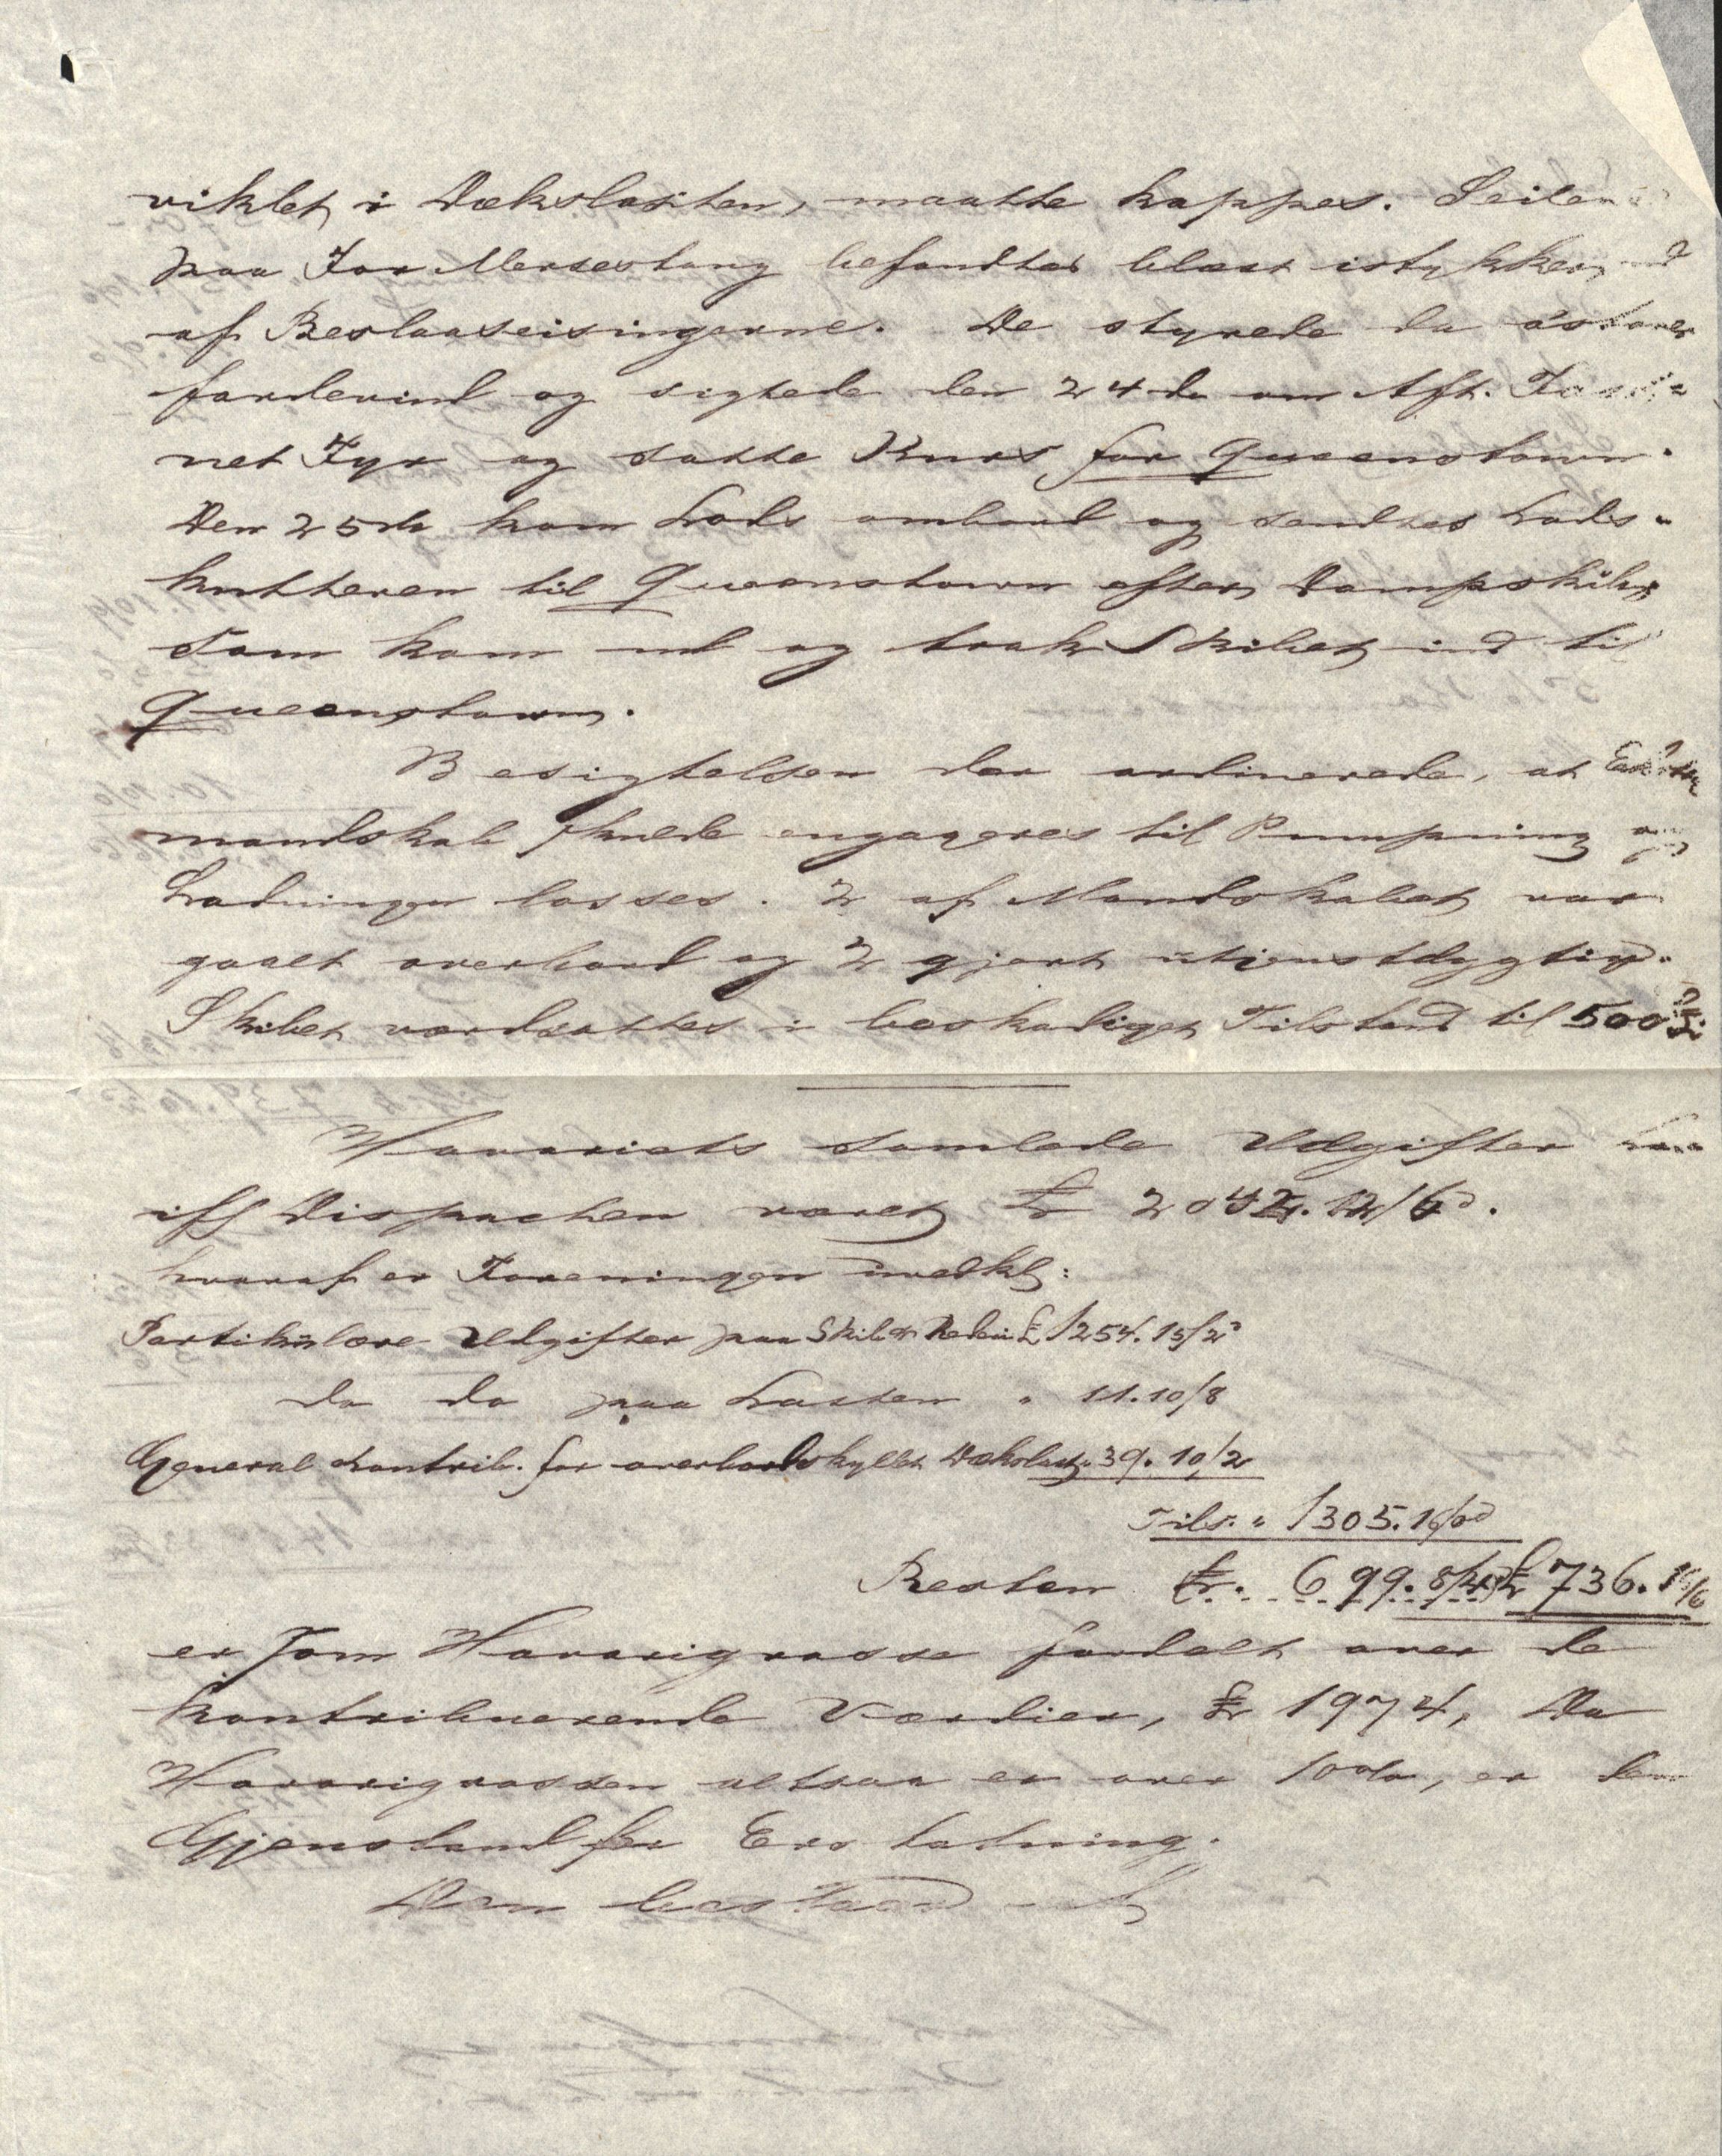 viklet i Dækslasten, maatte kappes. Seilene
paa For Mersestang befandtes blæst istykker, ud
af Beslaaseisingerne. De styrede da østover
fordevind og sigtede den 24de om Aft. Fast-
net Fyr og satte Kurs for Queenstown.
Den 25de kom Lods ombord og sendtes Lods-
kutteren til Queenstown efter Dampskib,
som kom ud og trak Skibet ind til
Queenstown.
Besigtelsen der ordinerede, at Extra
mandskab skulde engageres til Pumpning og
Ladningen losses. 2 af Mandskabet var
gaaet overbord og 2 gjort utjenstdygtig.
Skibet værdsattes i beskadiget Tilstand til 500 £
Havariets samlede Udgifter har
iflg Dispachen været £ 2042.12/6d.
hvoraf er Foreningen uvedkl:
Partikulære Udgifter paa Skib & Rederi £ 1254.15/2d
do do paa Lasten " 11.10/8
General Kontrib. for overbordskyllet Dækslast " 39.10/2
Tils. " 1305.16/0d
Resten £. 699.8/ £ 736.16/6
er som Havarigrosse fordelt over de
kontribuerende Værdier, £ 1974, Da
Havarigrossen altsaa er over 10%, er den
Gjenstand for Erstatning.
Den bestaar